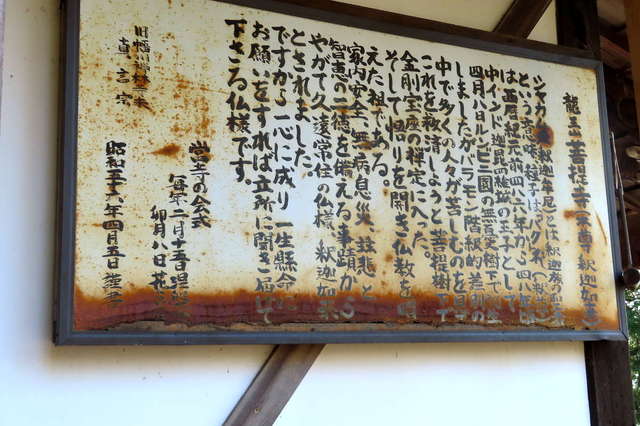 龍王山菩提寺(本尊 釈迦如来)
シャカ(釈迦牟尼)とは釈迦族の聖者
という意味、種子はバク
は西暦紀元前四六六年から四八年頃
中インド迦毘羅城の王子として
四月八日ルンビニ園の無憂樹下で誕生
しましたがバラモン階級的差別の
中で多くの人々が苦しむのを見て
これを救済しようと菩提樹下で
金剛宝座の禅定に入った。
そして悟りを開き仏教を唱
えた祖である。
家内安全、無病息災、慈悲と
智恵の二徳を備える事蹟から
やがて久遠常住の仏様、釈迦如来
とされました。
ですから一心に成り一生懸命に
お願いをすれば立所に聞き届けて
下さる仏様です。
当寺の会式
毎年二月十五日涅槃
卯月八日花
昭和五十六年四月五日
真言宗